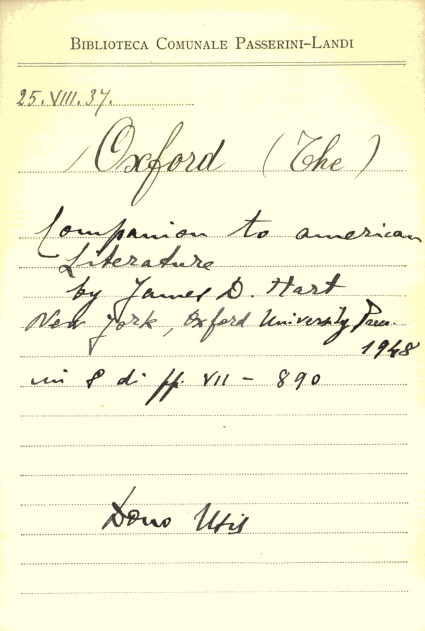 BIBLIOTECA COMUNALE PASSERINI-LANDI
25.VIII.37.
Oxford (The)
Companion to american
Literature
by James D. Hart
New York, Oxford University Press.
1948
in 8 di pp. VII - 890
Dono Usis